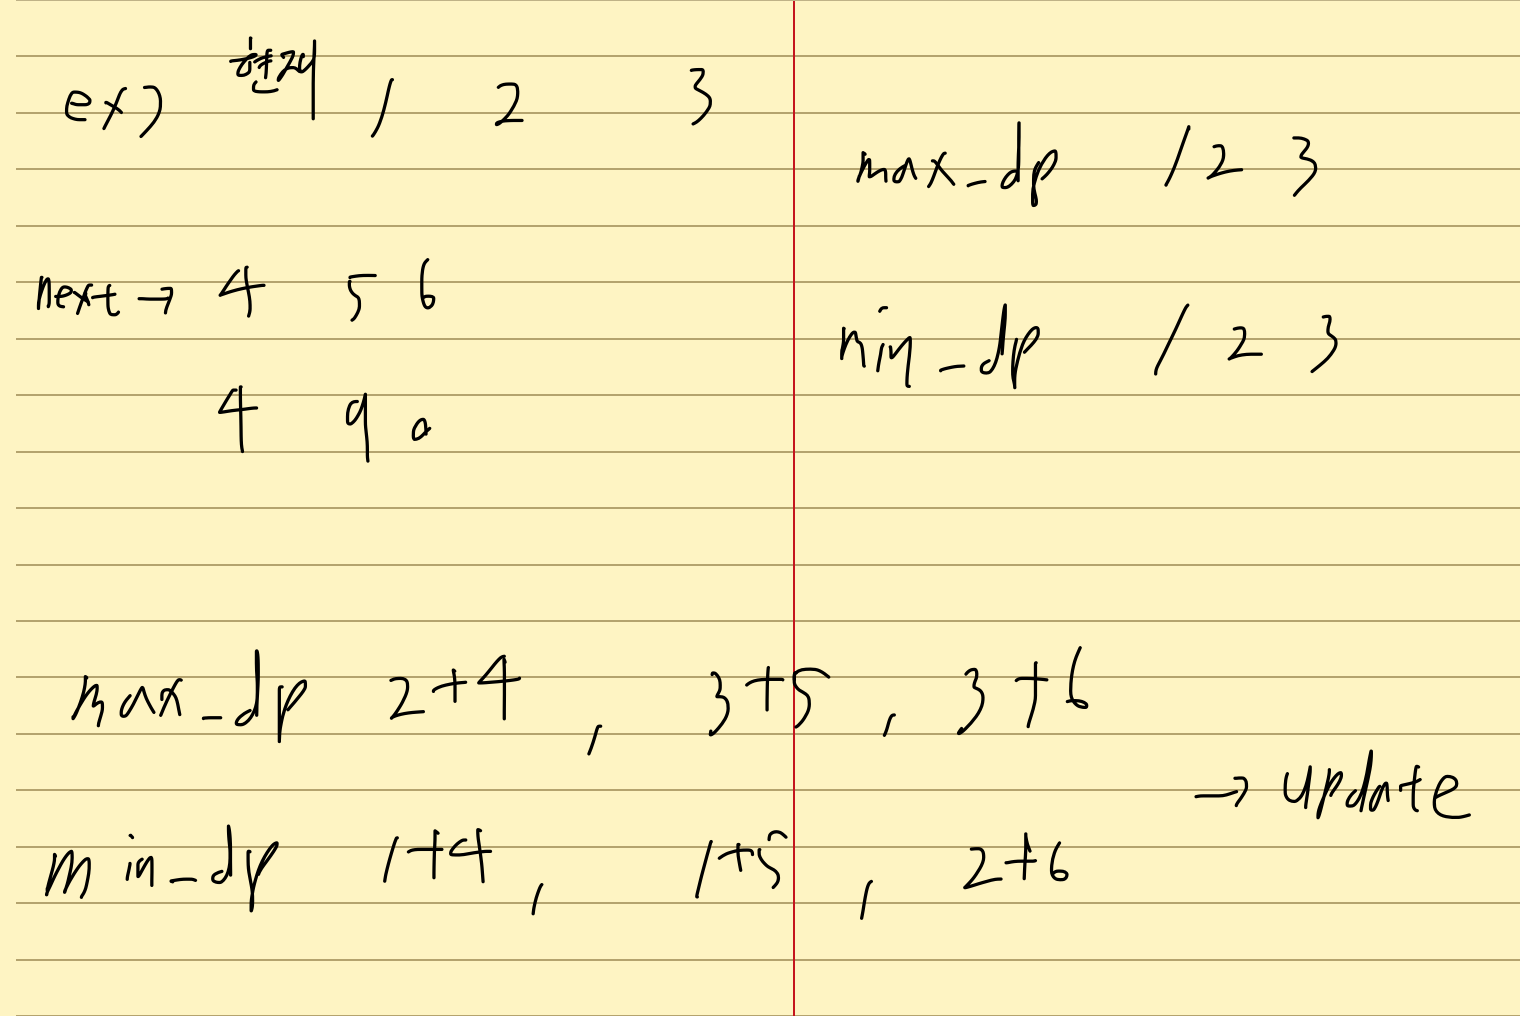 ex) 현재 1 2 3
next → 4 5 6
4 9 0
max_dp 1 2 3
min_dp 1 2 3
max_dp 2+4 , 3+5 , 3+6
→ update
min_dp 1+4 , 1+5 , 2+6